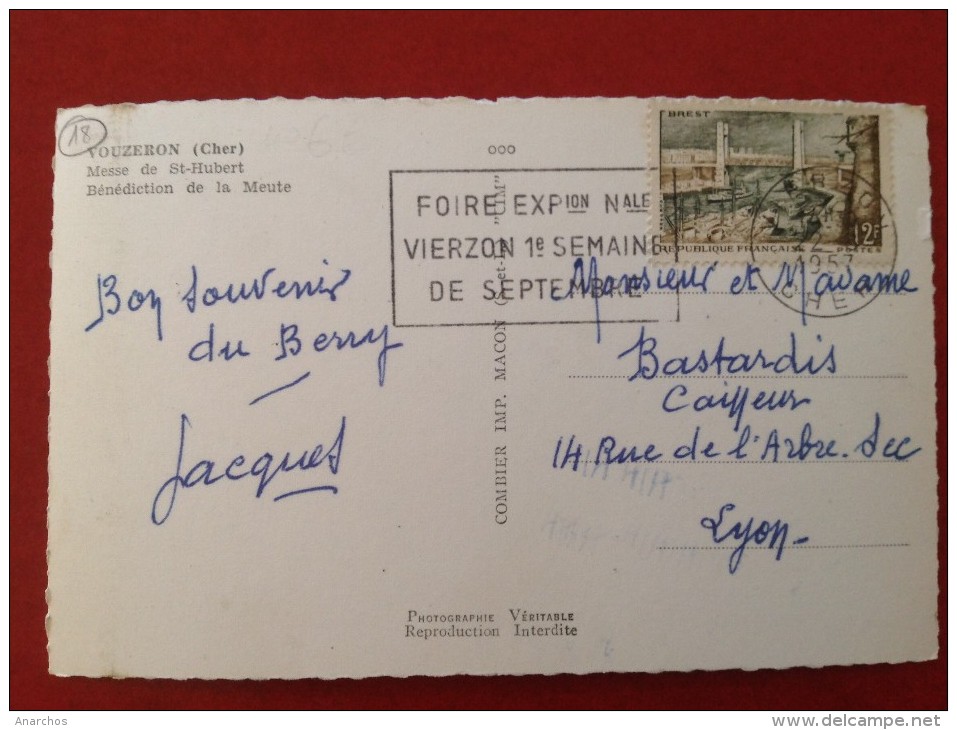 18
VOUZERON (Cher)
Messe de St-Hubert
Bénédiction de la Meute
ooo
FOIRE EXPION NALE
VIERZON 1e SEMAINE
DE SEPTEMBRE
BREST
12F
REPUBLIQUE FRANÇAISE POSTES
1957
CHER
COMBIER IMP. MACON (S.-et-L.) "CIM"
Bon Souvenir
du Berry
Jacques
Monsieur et Madame
Bastardis
Coiffeur
14 Rue de l'Arbre-Sec
Lyon-
PHOTOGRAPHIE VÉRITABLE
Reproduction Interdite
Anarchos
www.delcampe.net